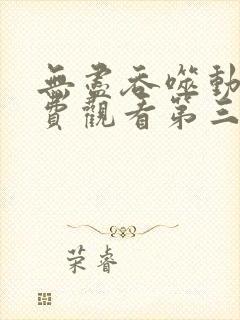 無盡吞噬動
費觀看第三
荣睿